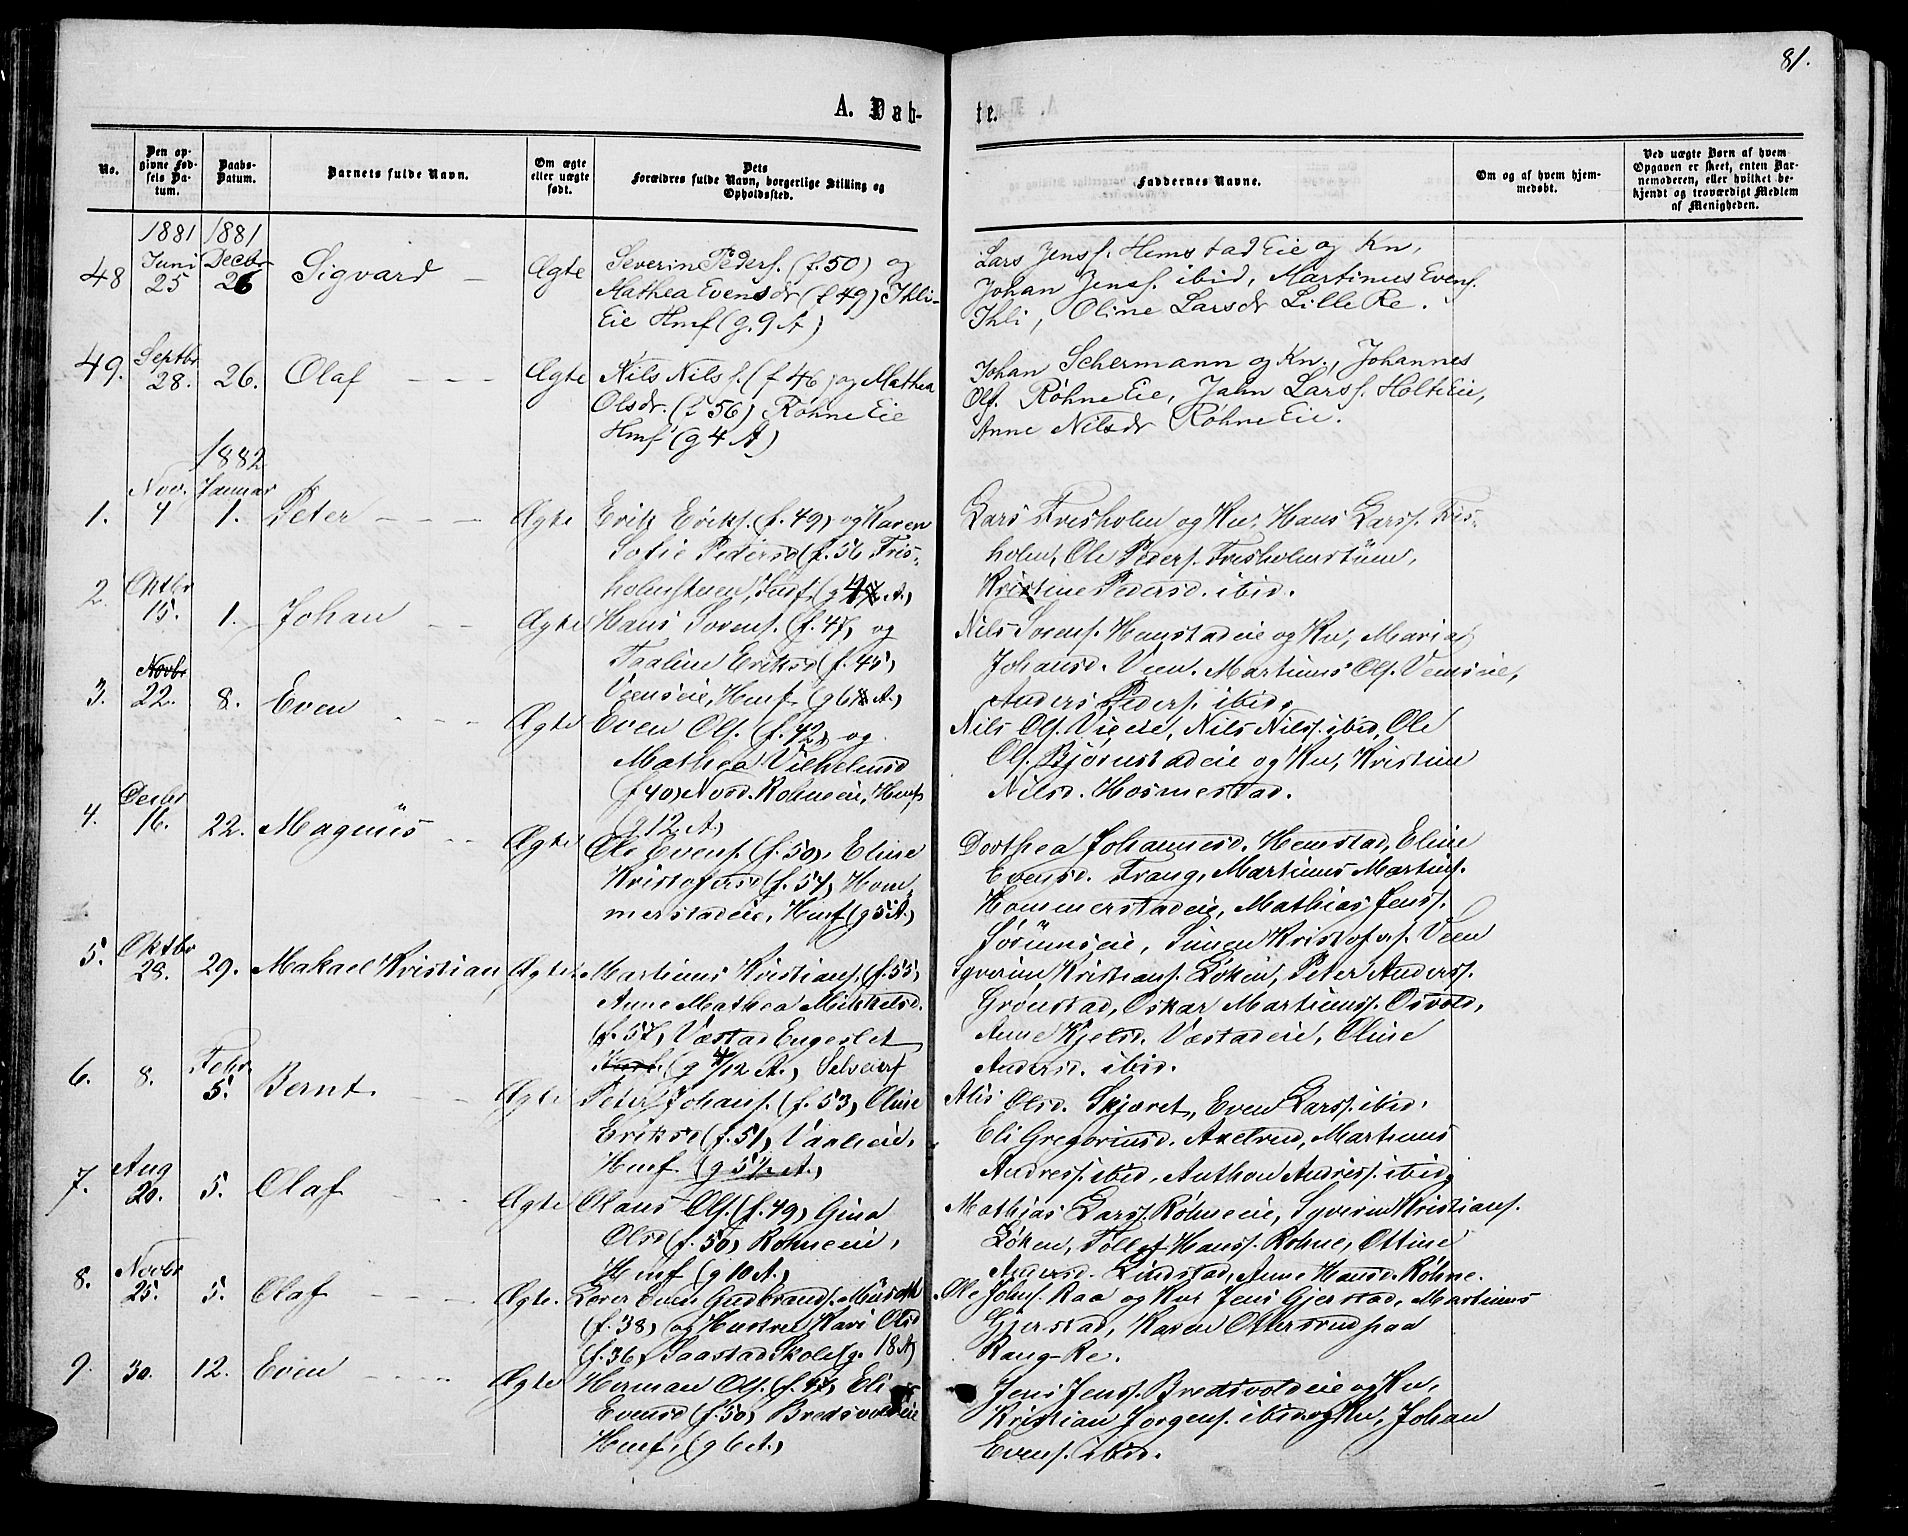 81.
A. Dåb-
te.
No.
Den opgivne Fødsels Datum.
Daabs-Datum.
Barnets fulde Navn.
Om ægte eller uægte født.
Dets Forældres fulde Navn, borgerlige Stilling og Opholdssted.
Faddernes Navne.
Om og af hvem hjemmedøbt.
Ved uægte Børn af hvem Opgaven er skeet, enten Barnemoderen, eller hvilket bekjendt og troværdigt Medlem af Menigheden.
1881 1881
48 Juni 25 Decbr 26 Sigvard Ægte Severin Peders. (f. 50) og
Mathea Evensdr (f 49) Ihli-
Eie Hmf (g. 9 A)
Lars Jenss. Hemstad Eie og Kn,
Johan Jenss. ibid, Martinus Evens.
Ihli, Oline Larsdr Lille Re.
49. Septbr 28. 26. Olaf Ægte Nils Nilss. (f 46) og Mathea
Olsdr. (f 56) Røhne Eie
Hmf (g 4 A)
Johan Schermann og Kn., Johannes
Ols. Røhne Eie, Jahn Larss. Holt Eie,
Anne Nilsdr Røhne Eie.
1882
1. Nov. 4 Januar 1. Peter Ægte Erik Eriks. (f. 49) og Karen
Sofie Pedersd (f. 56 Fris-
holmsteren, Inds. (g 4 A.)
Lars Frisholm og Kv, Hans Larss. Fris-
holm, Ole Peders. Frisholmstuen,
Kristine Pedersd. ibid.
2. Oktbr 15. 1. Johan Ægte Hans Sorens. (f. 47) og
Taaline Eriksd (f. 45)
Veenseie, Hmf (g 6 A.)
Nils Sorens. Hemstadeie og Kv, Maria
Johansd. Veen. Martinus Ols. Venseie,
Anders Peders. ibid.
3. Novbr 22. 8. Even Ægte Even Ols. (f. 42) og
Mathea Vilhelmsd
(f 40) Nord. Rohneeie, Hmf
(g 12 A.)
Nils Ols. Vigeie, Nils Nilss. ibid, Ole
Ols. Bjørnstadeie og Kv, Kristine
Nilsd. Hosmestad.
4. Decbr 16. 22. Magnus Ægte Ole Evens. (f. 50), Eline
Kristofersd (f. 54), Hom-
merstadeie, Hmf (g 5 A.)
Dorthea Johannesd. Hemstad, Eline
Evensd. Frang, Martinus Martins.
Hommerstadeie, Mathias Jenss.
Sørumseie, Simen Kristofers. Veen
5. Oktbr 28. 29. Makael Kristian Ægte Martinus Kristians. (f. 55)
Anne Mathea Mikkelsd.
(f. 57), Væstad Engeslet
(g 4/12 A.) Selveierf
Syverin Kristians. Løken, Peter Anderss.
Grønstad, Oskar Martinuss. Osvold,
Anne Kjelsd. Væstadeie, Oline
Andersd. ibid.
6. 8. Febr 5. Bernt Ægte Peter Johans. (f. 53) Oline
Eriksd (f. 51), Vaaleeie,
Hmf (g 5½ A.)
Alis Olsd. Skjæret, Even Larss. ibid.
Eli Gregoriusd. Axelrud, Martinus
Andress. ibid, Anthon Andress. ibid,
7. Aug 20. 5. Olaf Ægte Olaus Ols. (f. 49) Gina
Olsd (f. 50) Rohneeie,
Hmf (g 10 A.)
Mathias Larss. Røhneeie, Syverin Kristians.
Løken, Tollef Hanss. Rohne, Ottine
Andersd. Lindstad, Anne Hansd. Røhne.
8. Novbr 25. 5. Olaf Ægte. Lærer Even Gudbrands. Musæth
(f. 38) og Hustru Kari Olsd
(f. 36) Saastad Skole (g. 18 A)
Ole Johns. Raa og Kv. Jens Gjerstad, Martinus
Gjerstad, Karen Ottersrud paa
Rang-Re.
9. 30. 12. Even Ægte Herman Ols. (f. 47), Eli
Evensd (f. 50) Bredsvoldeie
Hmf, (g 6 A.)
Jens Jenss. Bredsvoldeie og Kv,
Kristian Jorgens. ibid og Kv, Johan
Evens. ibid.